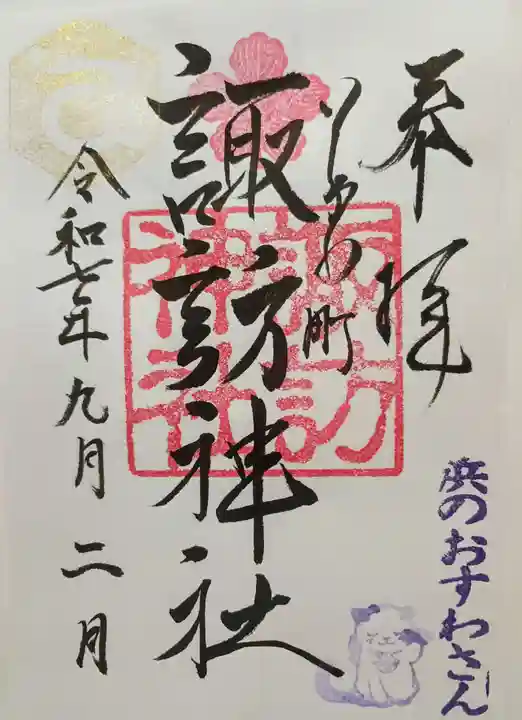 奉拝
しゃの町
諏訪神社
諏訪
神社
令和七年九月二日
浜のおすわさん